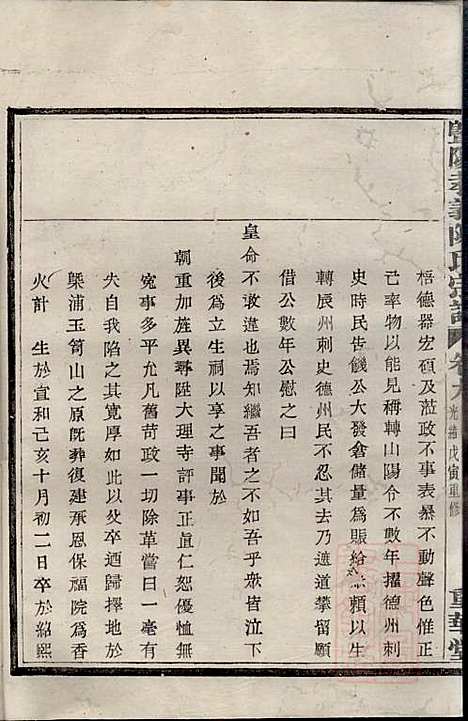 暨陽孝義陳氏宗譜 卷九 光緒戊寅重修 重華堂
梧德器宏碩及蒞政不事表暴不動聲色惟正
己率物以能見稱轉山陽令不數年擢德州刺
史時民告饑公大發倉儲量為賑給 賴以生
轉辰州刺史德州民不忍其去乃遮道攀留願
借公數年公慰之曰
皇命不敢違也焉知繼吾者之不如吾乎衆皆泣下
後為立生祠以享之事聞於
朝重加旌異尋陞大理寺評事正直仁恕優恤無
寃事多平允凡舊苛政一切除革嘗曰一毫有
失自我陷之其寬厚如此以癹卒迺歸擇地於
槩浦玉笥山之原既葬復建承恩保福院為香
火計 生於宣和己亥十月初二日卒於紹熙